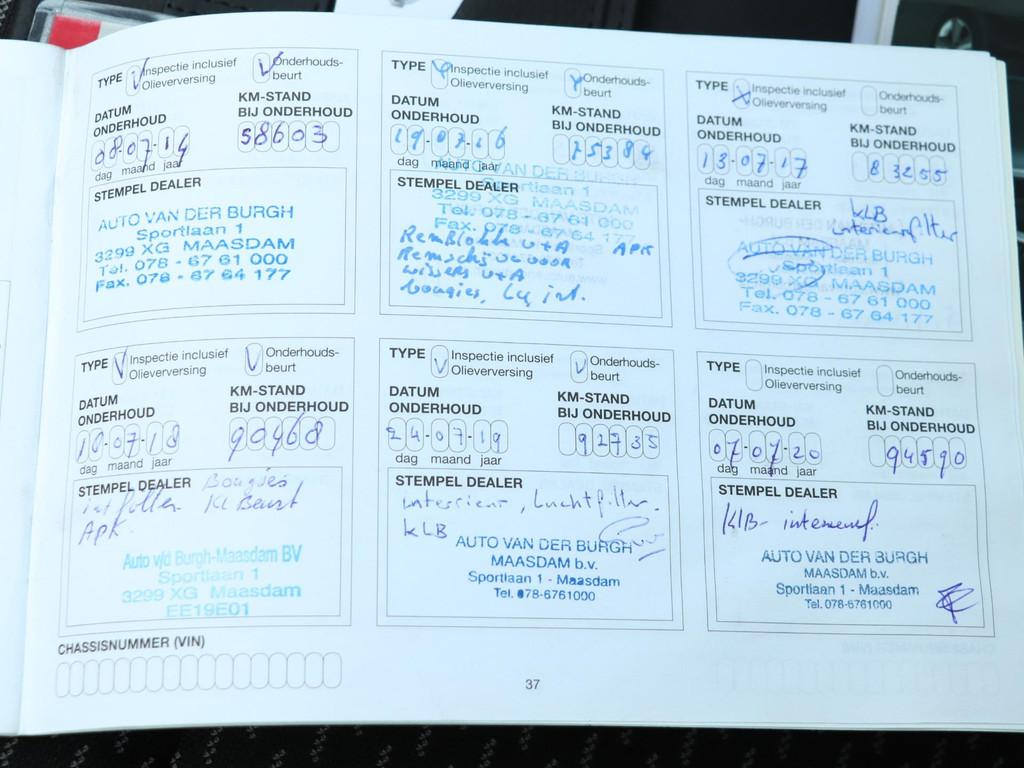 TYPE V Inspectie inclusief Olieverversing V Onderhouds-beurt
DATUM ONDERHOUD
KM-STAND BIJ ONDERHOUD
08-07-14
58603
dag maand jaar
STEMPEL DEALER
AUTO VAN DER BURGH
Sportlaan 1
3299 XG MAASDAM
Tel. 078 - 67 61 000
Fax. 078 - 67 64 177
TYPE Inspectie inclusief Olieverversing Onderhouds-beurt
DATUM ONDERHOUD
KM-STAND BIJ ONDERHOUD
19-07-16
75384
dag maand jaar
STEMPEL DEALER
AUTO VAN DER BURGH
Sportlaan 1
3299 XG MAASDAM
Tel. 078 - 67 61 000
Fax. 078 - 67 64 177
Remblokken V+A APK
Remschijven voor
wissers V+A
bougies, int.
TYPE X Inspectie inclusief Olieverversing Onderhouds-beurt
DATUM ONDERHOUD
KM-STAND BIJ ONDERHOUD
13-07-17
83255
dag maand jaar
STEMPEL DEALER
KLB
interieurfilter
AUTO VAN DER BURGH
Sportlaan 1
3299 XG MAASDAM
Tel. 078 - 67 61 000
Fax. 078 - 67 64 177
TYPE V Inspectie inclusief Olieverversing V Onderhouds-beurt
DATUM ONDERHOUD
KM-STAND BIJ ONDERHOUD
10-07-18
90468
dag maand jaar
STEMPEL DEALER
Bougies
int filter Kl Beurt
APK.
Auto v/d Burgh-Maasdam BV
Sportlaan 1
3299 XG Maasdam
EE19E01
TYPE V Inspectie inclusief Olieverversing V Onderhouds-beurt
DATUM ONDERHOUD
KM-STAND BIJ ONDERHOUD
24-07-19
92735
dag maand jaar
STEMPEL DEALER
interieur, Luchtfilter.
KLB
AUTO VAN DER BURGH
MAASDAM b.v.
Sportlaan 1 - Maasdam
Tel. 078-6761000
TYPE Inspectie inclusief Olieverversing Onderhouds-beurt
DATUM ONDERHOUD
KM-STAND BIJ ONDERHOUD
07-07-20
94590
dag maand jaar
STEMPEL DEALER
KLB- interieurf.
AUTO VAN DER BURGH
MAASDAM b.v.
Sportlaan 1 - Maasdam
Tel. 078-6761000
CHASSISNUMMER (VIN)
37